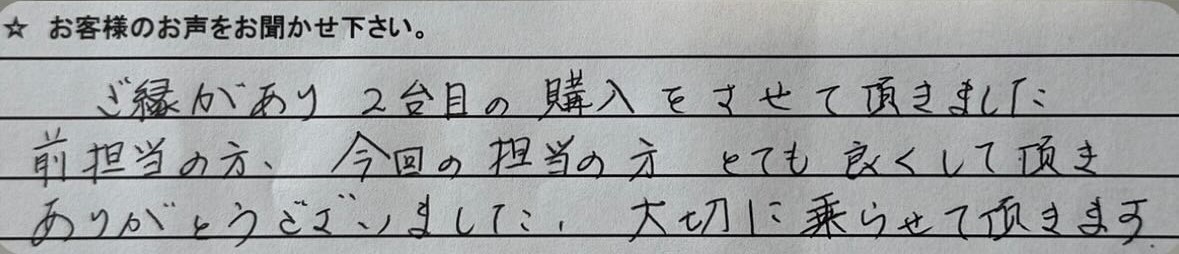 ☆ お客様のお声をお聞かせ下さい。
ご縁があり 2台目の購入をさせて頂きました
前担当の方、今回の担当の方 とても良くして頂き
ありがとうございました。大切に乗らせて頂きます。